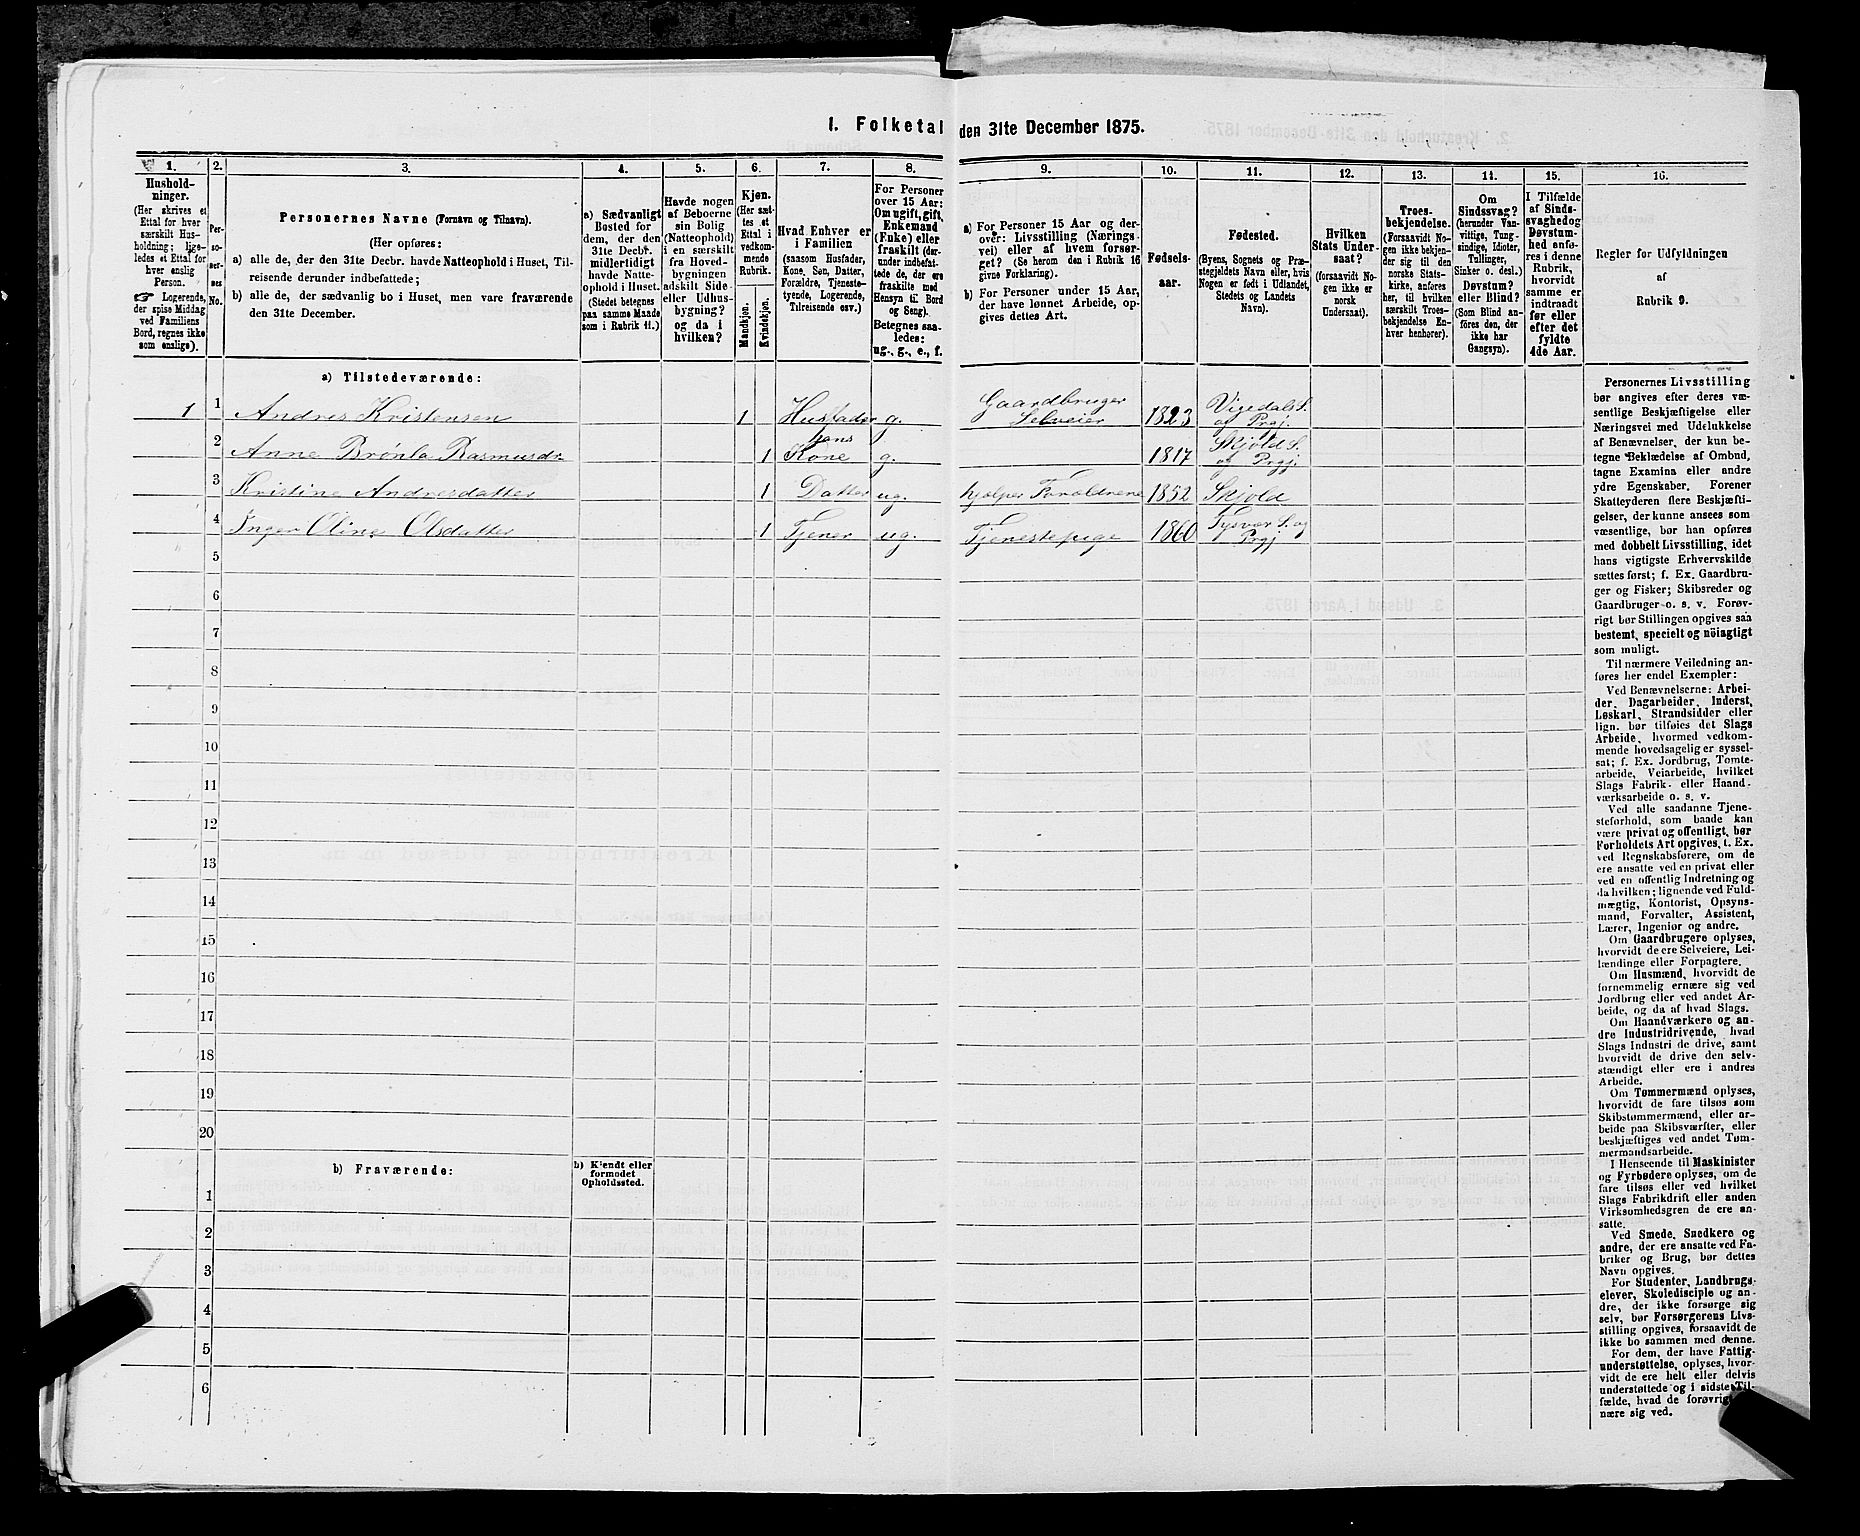 1. Folketal den 31te December 1875.
1.
2.
3.
4.
5.
6.
7.
8.
9.
10.
11.
12.
13.
14.
15.
16.
Hushold-
ninger.
(Her skrives et
Ettal for hver
særskilt Hus-
holdning; lige-
ledes et Ettal for
hver enslig
Person.
☞ Logerende,
der spise Middag
ved Familiens
Bord, regnes ikke
som enslige).
Per-
so-
ner-
nes
No.
Personernes Navne (Fornavn og Tilnavn).
(Her opføres:
a) alle de, der den 31te Decbr. havde Natteophold i Huset, Til-
reisende derunder indbefattede;
b) alle de, der sædvanlig bo i Huset, men vare fraværende
den 31te December.
a) Sædvanligt
Bosted for
dem, der den
31te Decbr.
midlertidigt
havde Natte-
ophold i Huset.
(Stedet betegnes
paa samme Maade
som i Rubrik 11.)
Havde nogen
af Beboerne
sin Bolig
(Natteophold)
i en særskilt
fra Hoved-
bygningen
adskilt Side-
eller Udhus-
bygning?
og da i
hvilken?
Kjøn.
(Her sæt-
tes et
Ettal i
vedkom-
mende
Rubrik.
Mandkjøn.
Kvindekjøn.
Hvad Enhver er
i Familien
(saasom Husfader,
Kone, Søn, Datter,
Forældre, Tjeneste-
tyende, Logerende,
Tilreisende osv.)
For Personer
over 15 Aar:
Om ugift, gift,
Enkemand
(Enke) eller
fraskilt (der-
under indbefat-
tede de, der ere
fraskilte med
Hensyn til Bord
og Seng).
Betegnes saa-
ledes:
ug., g., e., f.
a) For Personer 15 Aar og der-
over: Livsstilling (Nærings-
vei) eller af hvem forsør-
get? (Se herom den i Rubrik 16
givne Forklaring).
b) For Personer under 15 Aar,
der have lønnet Arbeide, op-
gives dettes Art.
Fødsels-
aar.
Fødested.
(Byens, Sognets og Præ-
stegjeldets Navn eller, hvis
Nogen er født i Udlandet,
Stedets og Landets
Navn).
Hvilken
Stats Under-
saat?
(forsaavidt No-
gen ikke er
norsk
Undersaat).
Troes-
bekjendelse.
(Forsaavidt No-
gen ikke bekjen-
der sig til den
norske Stats-
kirke, anføres
her, til hvilken
særskilt Troes-
bekjendelse En-
hver henhører).
Om
Sindssvag?
(herunder Van-
vittige, Tung-
sindige, Idioter,
Tullinger,
Sinker o. desl.)
Døvstum?
eller Blind?
(Som Blind an-
føres den, der
ikke har
Gangsyn).
I Tilfælde
af Sinds-
svaghed og
Døvstum-
hed anfø-
res i denne
Rubrik,
hvorvidt
samme er
indtraadt
før eller
efter det
fyldte
4de Aar.
Regler for Udfyldningen
af
Rubrik 9.
a) Tilstedeværende:
1 1 Andres Kristensen 1 Husfader g. Gaardbruger Selveier 1823 Vigedals S. og Prgj.
2 Anne Brønla Rasmusdr 1 hans Kone g. 1817 Skjold S. og Prgj.
3 Kristine Andresdatter 1 Datter ug. hjælper Forældrene 1852 Skjold
4 Inger Oline Olsdatter 1 Tjener ug. Tjenestepige 1860 Tysvær S. og Prgj
5
6
7
8
9
10
11
12
13
14
15
16
17
18
19
20
b) Fraværende:
b) Kjendt eller
formodet
Opholdssted.
1
2
3
4
5
6
Personernes Livsstilling
bør angives efter deres væ-
sentlige Beskjæftigelse eller
Næringsvei med Udelukkelse
af Benævnelser, der kun be-
tegne Beklædelse af Ombud,
tagne Examina eller andre
ydre Egenskaber. Forener
Skatteyderen flere Beskjæfti-
gelser, der kunne ansees som
væsentlige, bør han opføres
med dobbelt Livsstilling, idet
hans vigtigste Erhvervskilde
sættes først; f. Ex. Gaardbru-
ger og Fisker; Skibsreder og
Gaardbruger o. s. v. Forøv-
rigt bør Stillingen opgives saa
bestemt, specielt og nöiagtigt
som muligt.
Til nærmere Veiledning an-
føres her endel Exempler:
Ved Benævnelserne: Arbei-
der, Dagarbeider, Inderst,
Løskarl, Strandsidder eller
lign. bør tilføies det Slags
Arbeide, hvormed vedkom-
mende hovedsagelig er syssel-
sat; f. Ex. Jordbrug, Tomte-
arbeide, Veiarbeide, hvilket
Slags Fabrik- eller Haand-
værksarbeide o. s. v.
Ved alle saadanne Tjene-
steforhold, som baade kan
være privat og offentligt, bør
Forholdets Art opgives, t. Ex.
ved Regnskabsførere, om de
ere ansatte ved en privat eller
ved en offentlig Indretning og
da hvilken; lignende ved Fuld-
mægtig, Kontorist, Opsyns-
mand, Forvalter, Assistent,
Lærer, Ingeniør og andre.
Om Gaardbrugere oplyses,
hvorvidt de ere Selveiere, Lei-
lændinge eller Forpagtere.
Om Husmænd, hvorvidt de
fornemmelig ernære sig ved
Jordbrug eller ved andet Ar-
beide, og da af hvad Slags.
Om Haandværkere og an-
dre Industridrivende, hvad
Slags Industri de drive, samt
hvorvidt de drive den selv-
stændigt eller ere i andres
Arbeide.
Om Tømmermænd oplyses,
hvorvidt de fare tilsøs som
Skibstømmermænd, eller ar-
beide paa Skibsværfter, eller
beskjæftiges ved andet Tøm-
mermandsarbeide.
I Henseende til Maskinister
og Fyrbødere oplyses, om de
fare tilsøs eller ved hvilket
Slags Fabrikdrift eller anden
Virksomhedsgren de ere an-
satte.
Ved Smede, Snedkere og
andre, der ere ansatte ved Fa-
briker og Brug, bør dettes
Navn opgives.
For Studenter, Landbrugs-
elever, Skoledisciple og an-
dre, der ikke forsørge sig
selv, bør Forsørgerens Livs-
stilling opgives, forsaavidt de
ikke bo sammen med denne.
For dem, der have Fattig-
understøttelse, oplyses, hvor-
vidt de ere helt eller delvis
understøttede og i sidste Til-
fælde, hvad de forøvrigt
nære sig ved.